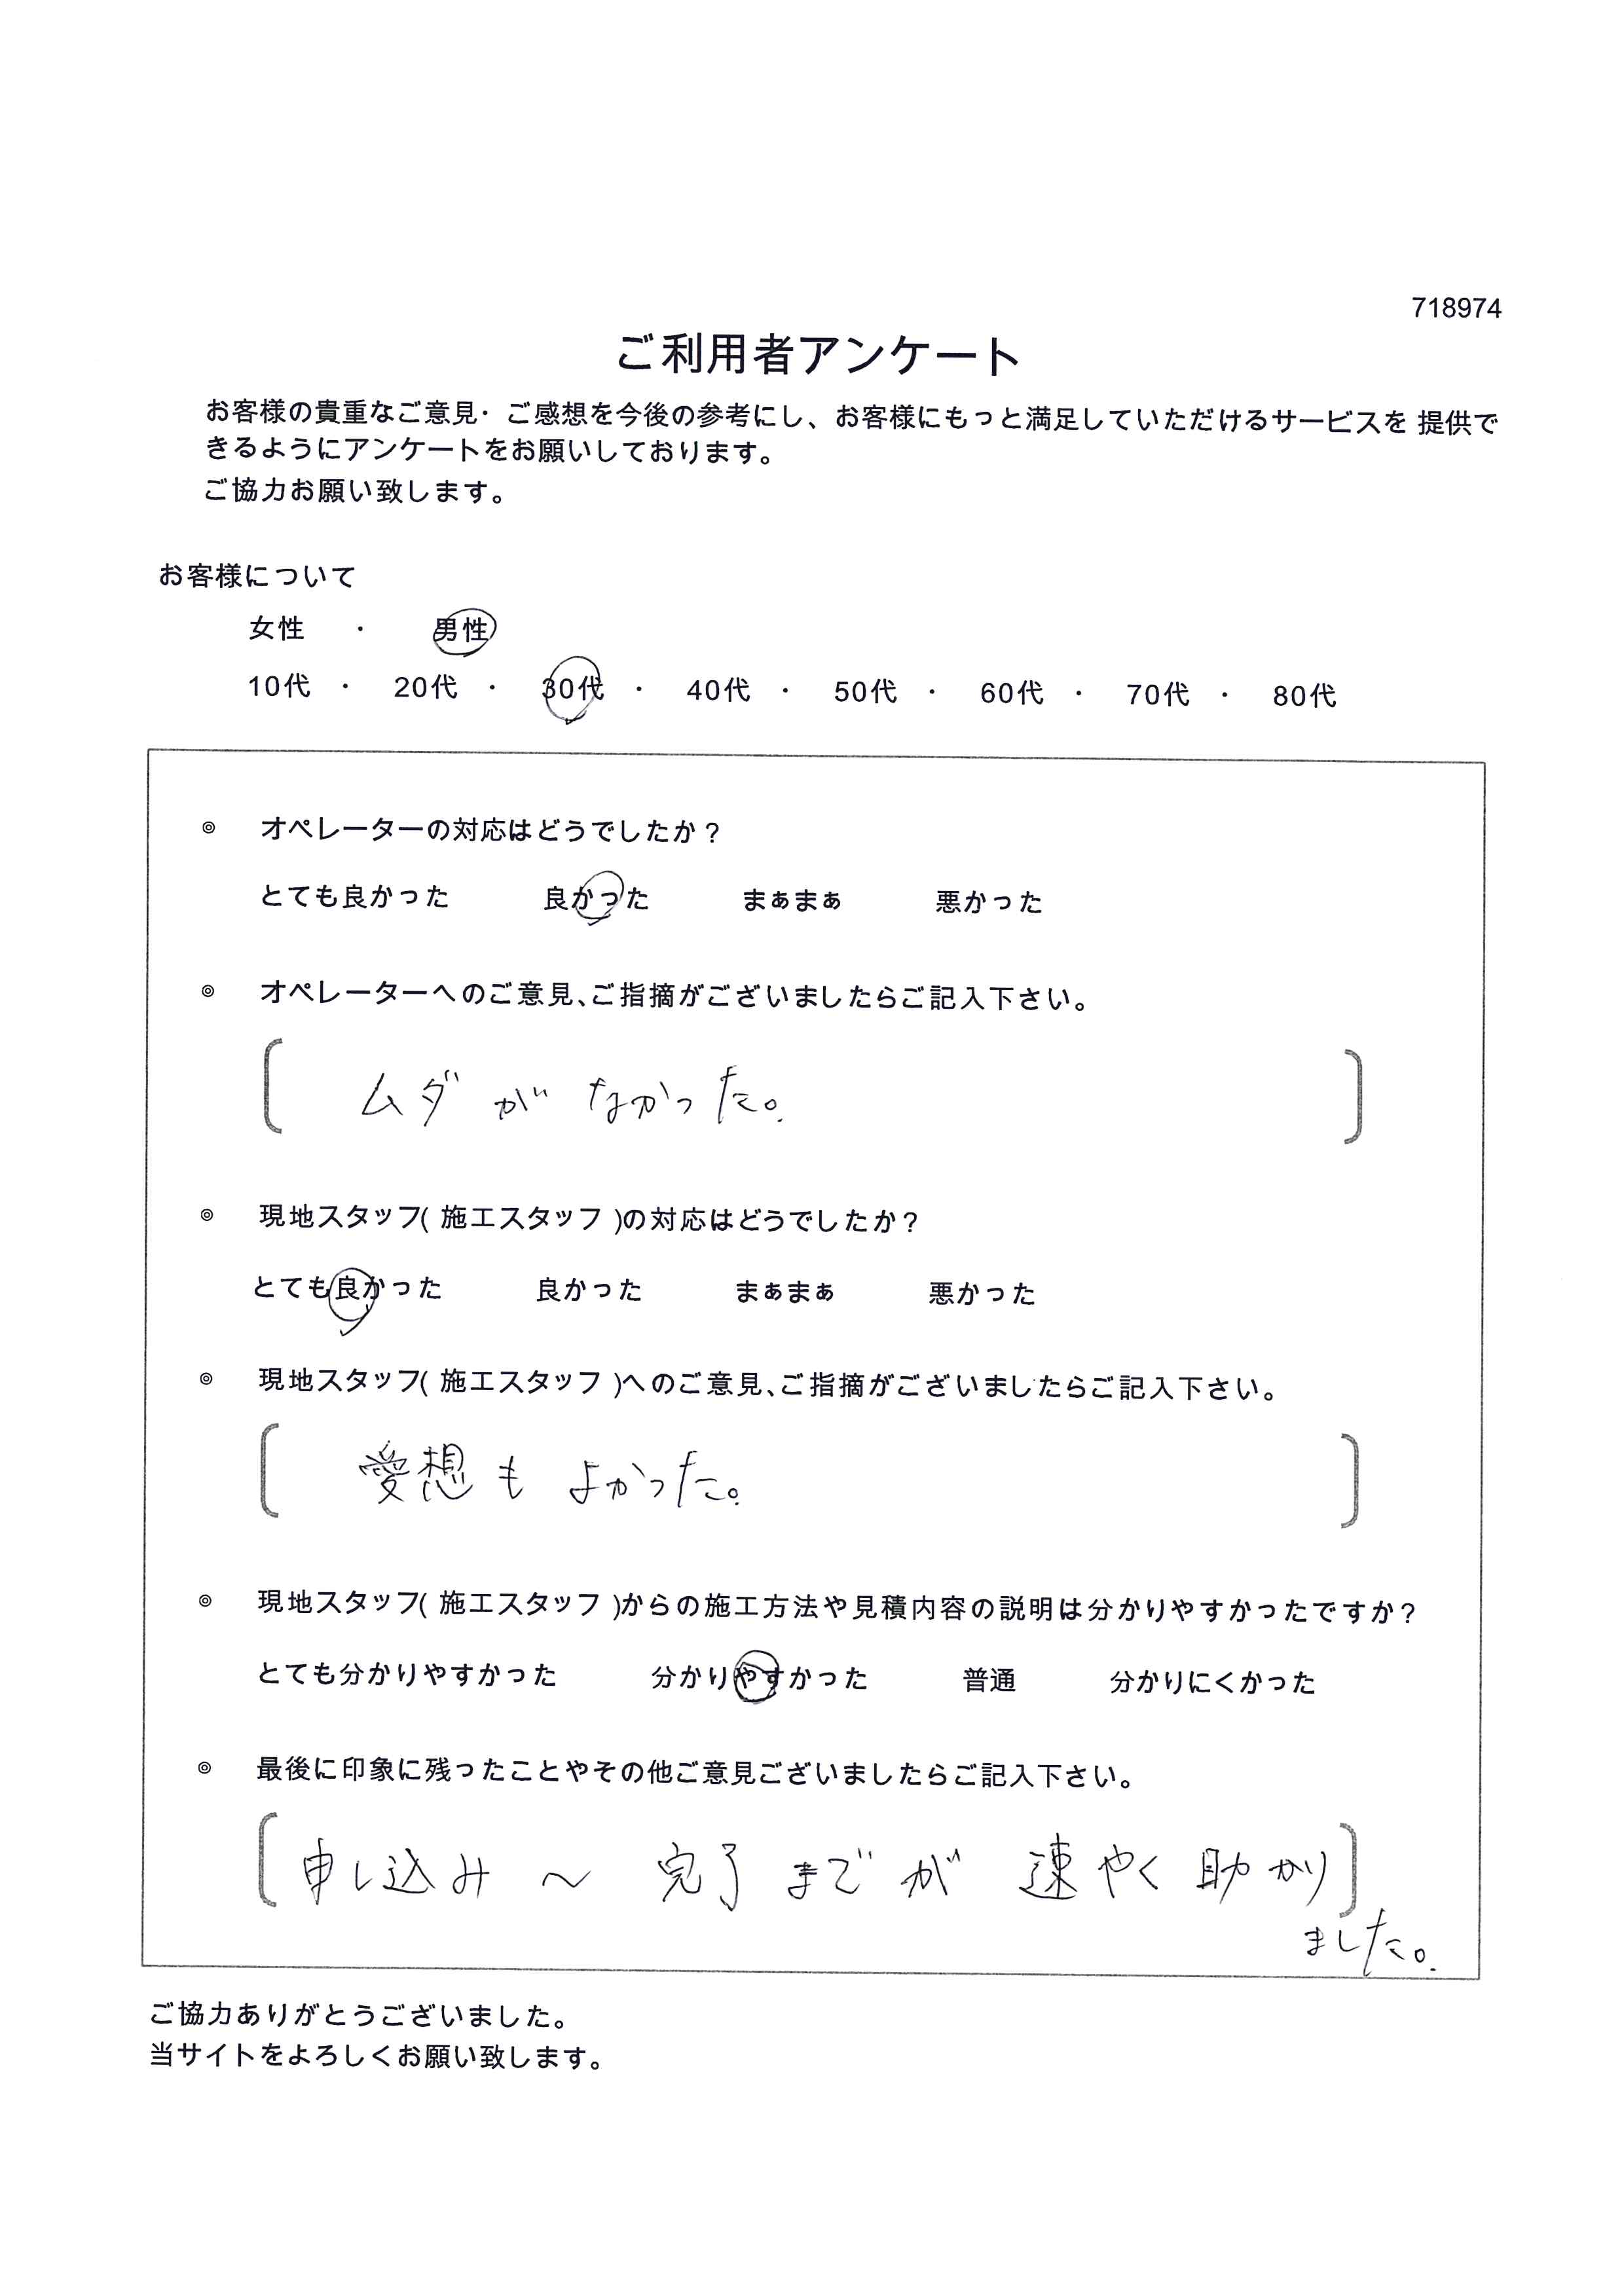 718974
ご利用者アンケート
お客様の貴重なご意見・ご感想を今後の参考にし、お客様にもっと満足していただけるサービスを 提供で
きるようにアンケートをお願いしております。
ご協力お願い致します。
お客様について
女性 ・ 男性
10代 ・ 20代 ・ 30代 ・ 40代 ・ 50代 ・ 60代 ・ 70代 ・ 80代
◎ オペレーターの対応はどうでしたか？
とても良かった 良かった まぁまぁ 悪かった
◎ オペレーターへのご意見、ご指摘がございましたらご記入下さい。
ムダがなかった。
◎ 現地スタッフ( 施工スタッフ )の対応はどうでしたか？
とても良かった 良かった まぁまぁ 悪かった
◎ 現地スタッフ( 施工スタッフ )へのご意見、ご指摘がございましたらご記入下さい。
愛想もよかった。
◎ 現地スタッフ( 施工スタッフ )からの施工方法や見積内容の説明は分かりやすかったですか？
とても分かりやすかった 分かりやすかった 普通 分かりにくかった
◎ 最後に印象に残ったことやその他ご意見ございましたらご記入下さい。
申し込み～完了までが速やく助かり
ました。
ご協力ありがとうございました。
当サイトをよろしくお願い致します。